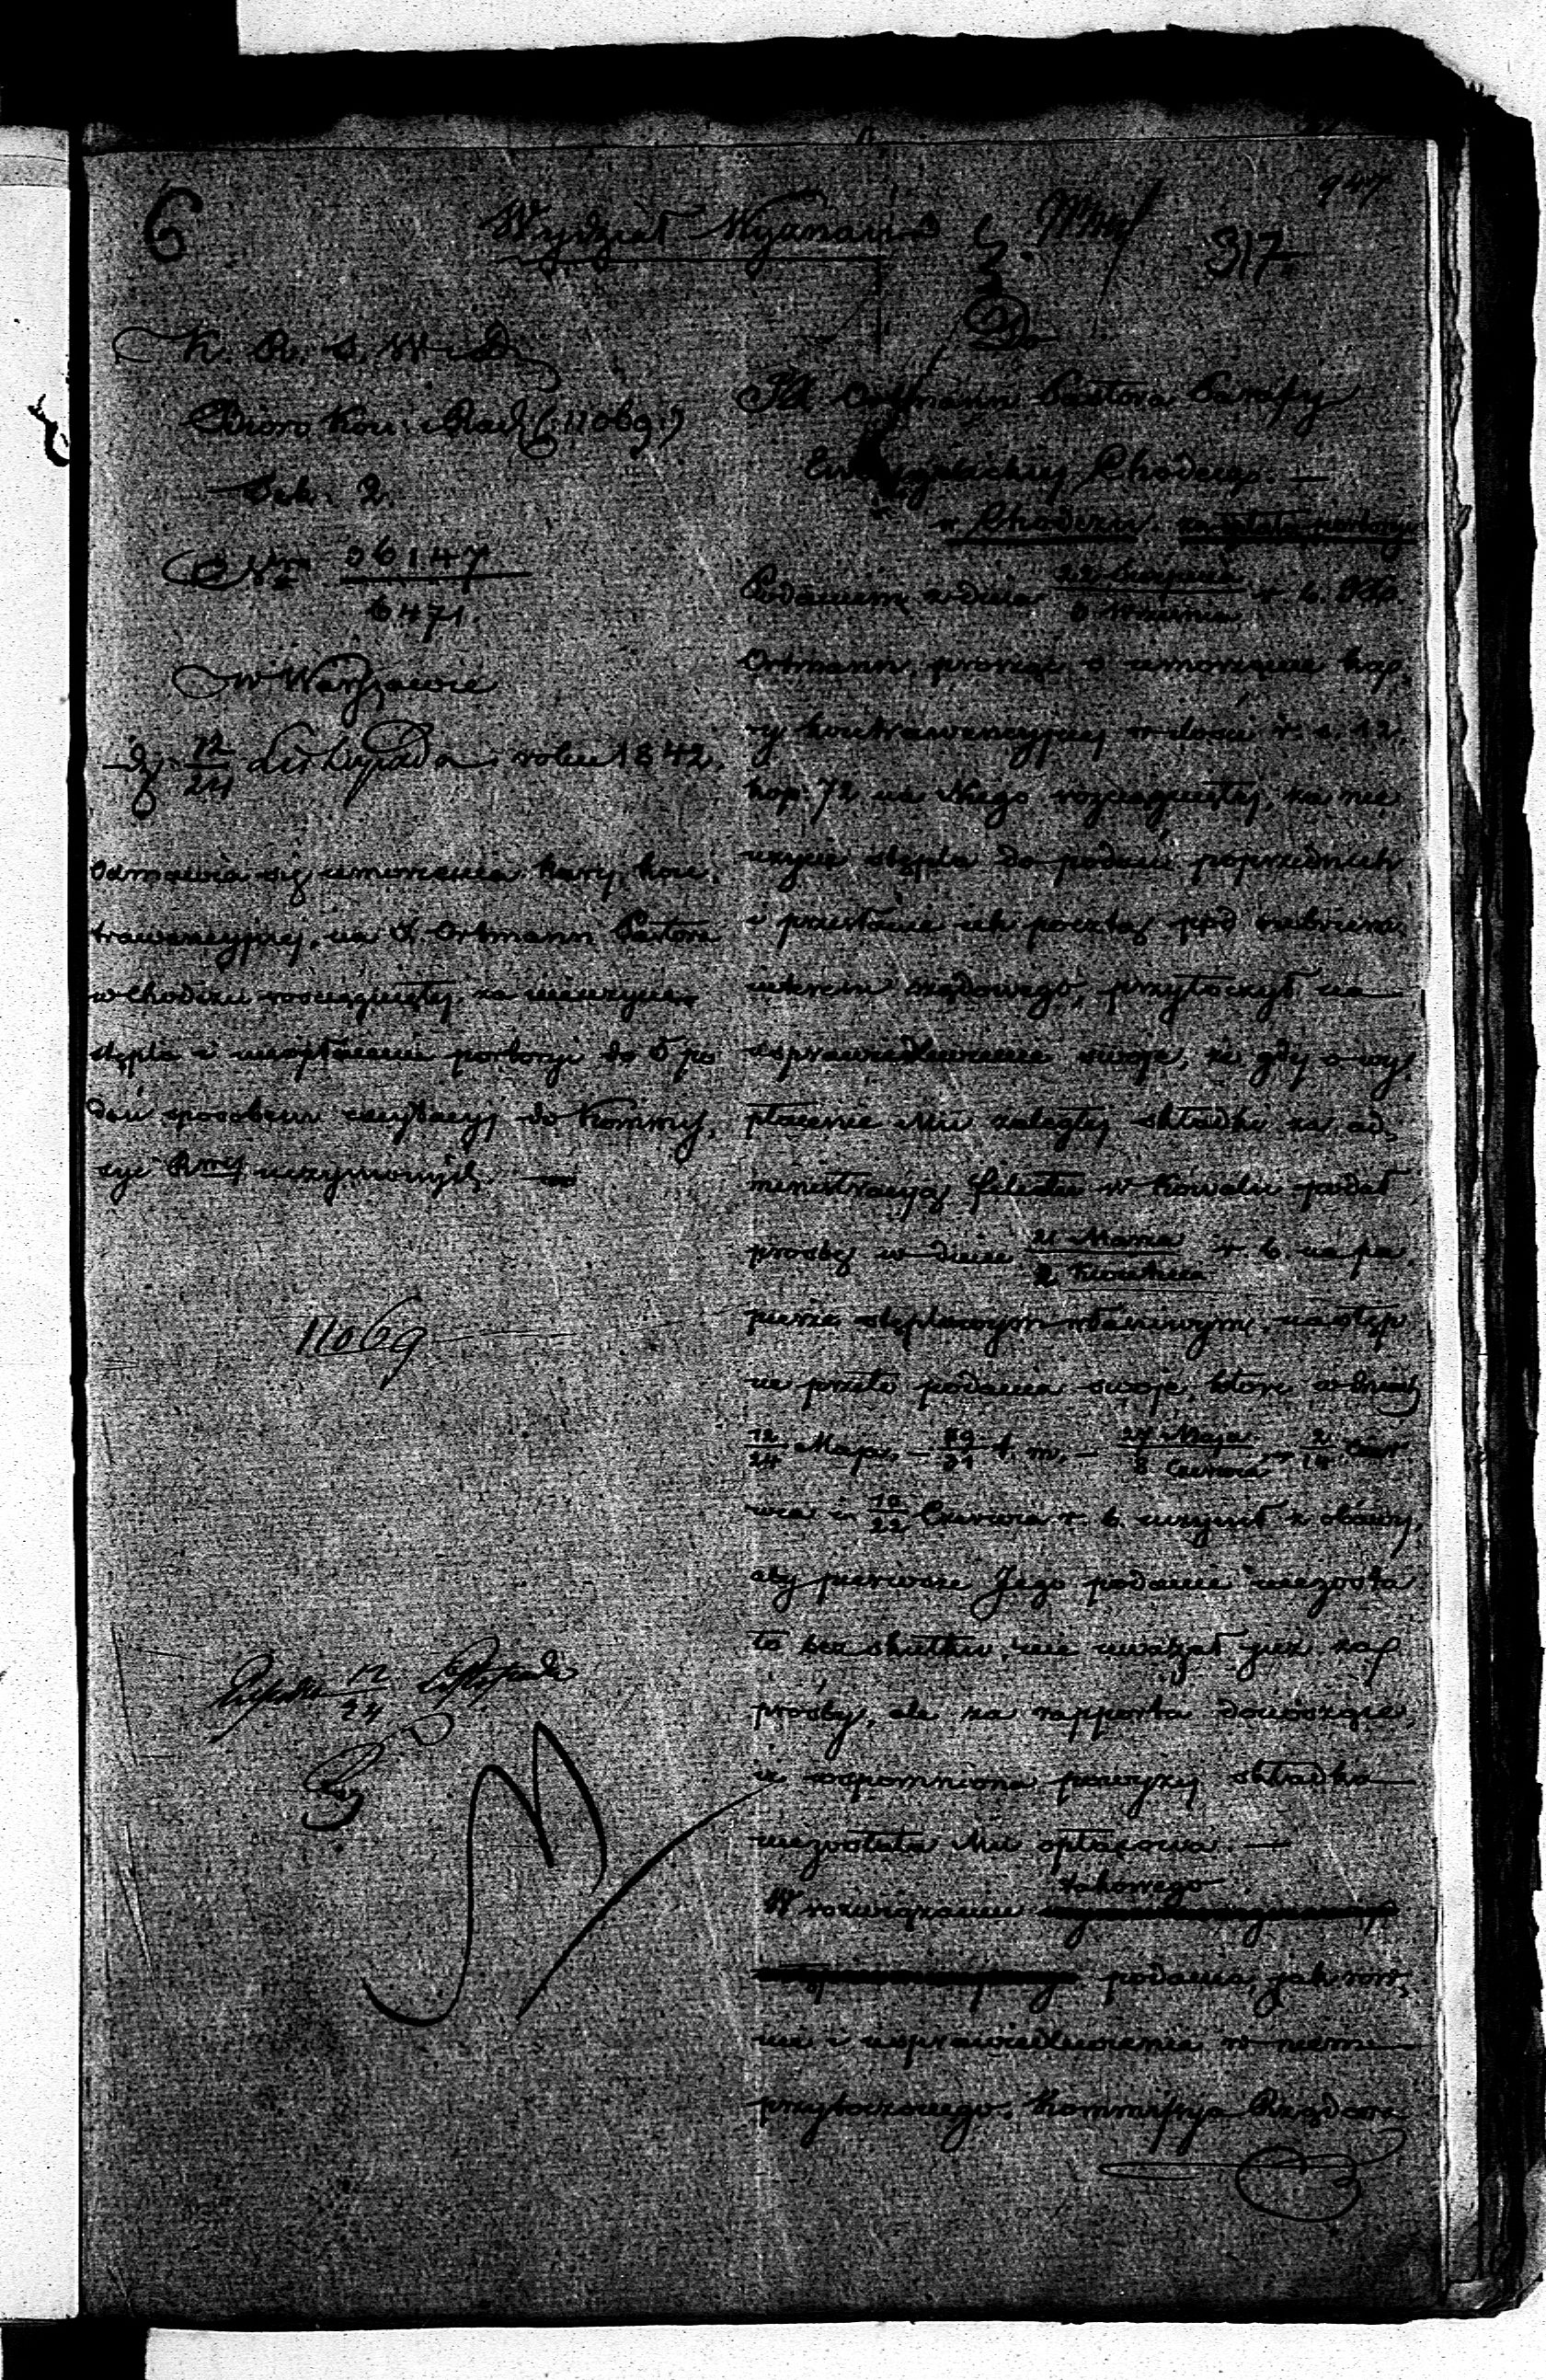 947
6
Wydział Wyznań
317
Do
K. R. S. W. i D.
Biuro Kon: i Rach (:11069:)
Sek. 2.
Nro 36147
6471.
w Warszawie
d. 12/24 Listopada roku 1842.
Odmawia się umorzenia kary kon,
trawencyjnej, na X. Ortmann Pastora
w Chodczu rosciągniętej, za nieużycie
stępla i nieopłacenie portoryi do 5 po
dań sposobem
do Kommis,
syi Rząd
11069
12/24 Listopada
JX Ortmann Pastora Parafy
Ewangielickiej Chodecz. —
w Chodczu. za opłatą portoryi
Podaniem z dnia 22 Sierpnia / 3 Września r. b. JX.
Ortmann, prosząc o umorzenie kap,
y kontrawencyjnej w ilości r. s. 12,
kop. 72 na Niego rozciągniętej, za nie
użycie stępla do podań poprzednich
i przesłanie ich pocztą pod rubrum
interesu rządowego, przytoczył na
usprawiedliwienie swoje, że gdy o wy,
płacenie Mu zaległej składki za ad,
ministracyą filiału w Kowalu podał
prosbę w dniu 21 Marca / 2 Kwietnia r. b. na pa,
pierze stęplowym właściwym, następ
ne przeto podania swoje, które w dniach
12/24 Maja, — 19/31 t. m. — 27 Maja / 8 Czerwca — 2/14 Czer
wca i 10/22 Czerwca r. b. uczynił z obawy,
aby pierwsze Jego podanie niezosta
ło bez skutku, nie uważał już za
prośby, ale za rapporta donoszące,
iż wspomniona powyżej składka
niezostała Mu opłacona. —
W rozwiązaniu takowego
podania, jak rów,
nie i usprawiedliwienia w niem
przytoczonego, Kommissya Rządowa